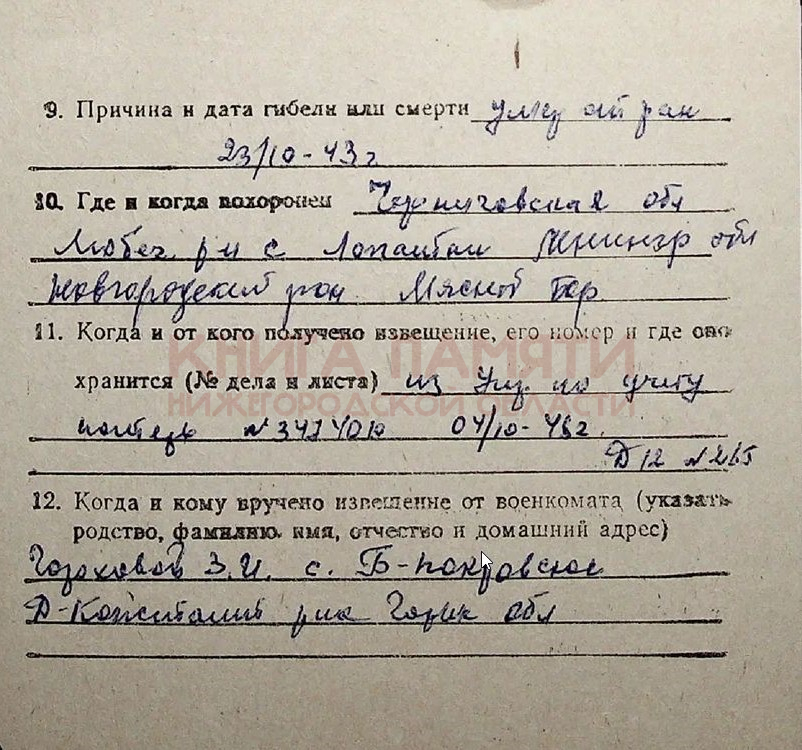 9. Причина и дата гибели или смерти умер от ран
23/10-43 г
10. Где и когда похоронен Черниговская обл
Любеч. р-н с Лопатни Ленингр обл
Новгородский р-он Мясной Бор
11. Когда и от кого получено извещение, его номер и где оно
КНИГА ПАМЯТИ
хранится (№ дела и листа) из Упр по учету
НИЖЕГОРОДСКОЙ ОБЛАСТИ
потерь 04/10-
Д 12 № 265
12. Когда и кому вручено извещение от военкомата (указать
родство, фамилию, имя, отчество и домашний адрес)
З.И. с. Б-покровское
Д-Константин р-на Горьк обл